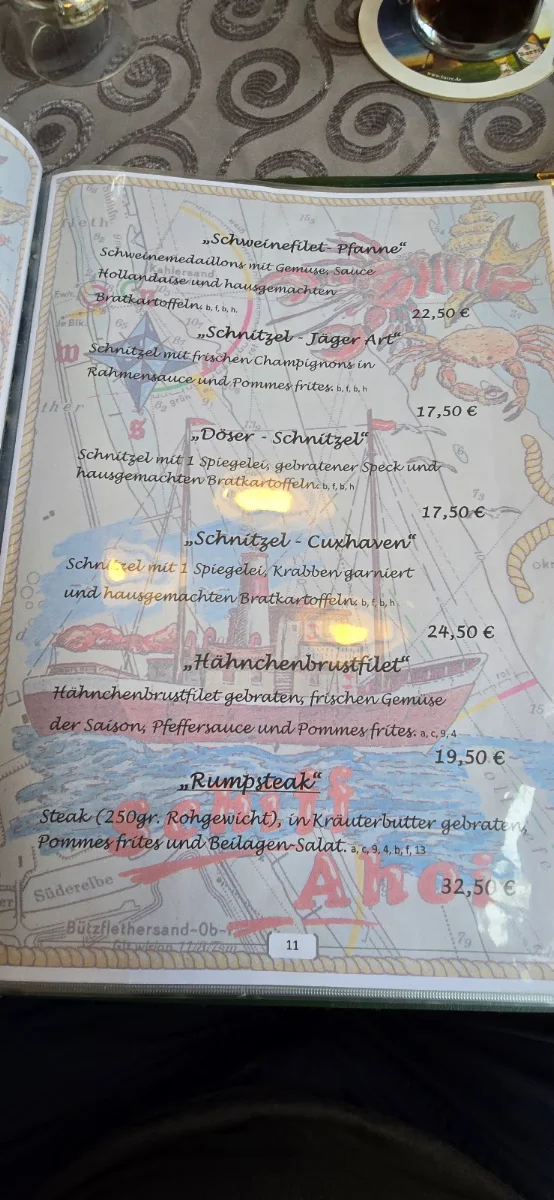 www.barre.de
„Schweinefilet- Pfanne“
Schweinemedaillons mit Gemüse, Sauce
Hollandaise und hausgemachten
Bratkartoffeln. b, f, b, h,
22,50 €
„Schnitzel - Jäger Art“
Schnitzel mit frischen Champignons in
Rahmensauce und Pommes frites. b, f, b, h
17,50 €
„Döser - Schnitzel“
Schnitzel mit 1 Spiegelei, gebratener Speck und
hausgemachten Bratkartoffeln. b, f, b, h
17,50 €
„Schnitzel - Cuxhaven“
Schnitzel mit 1 Spiegelei, Krabben garniert
und hausgemachten Bratkartoffeln. b, f, b, h
24,50 €
„Hähnchenbrustfilet“
Hähnchenbrustfilet gebraten, frischen Gemüse
der Saison, Pfeffersauce und Pommes frites. a, c, 9, 4
19,50 €
„Rumpsteak“
Steak (250gr. Rohgewicht), in Kräuterbutter gebraten,
Pommes frites und Beilagen-Salat. a, c, 9, 4, b, f, 13
32,50 €
Schiff
Ahoi
Süderelbe
Bützflethersand-Ob-
11